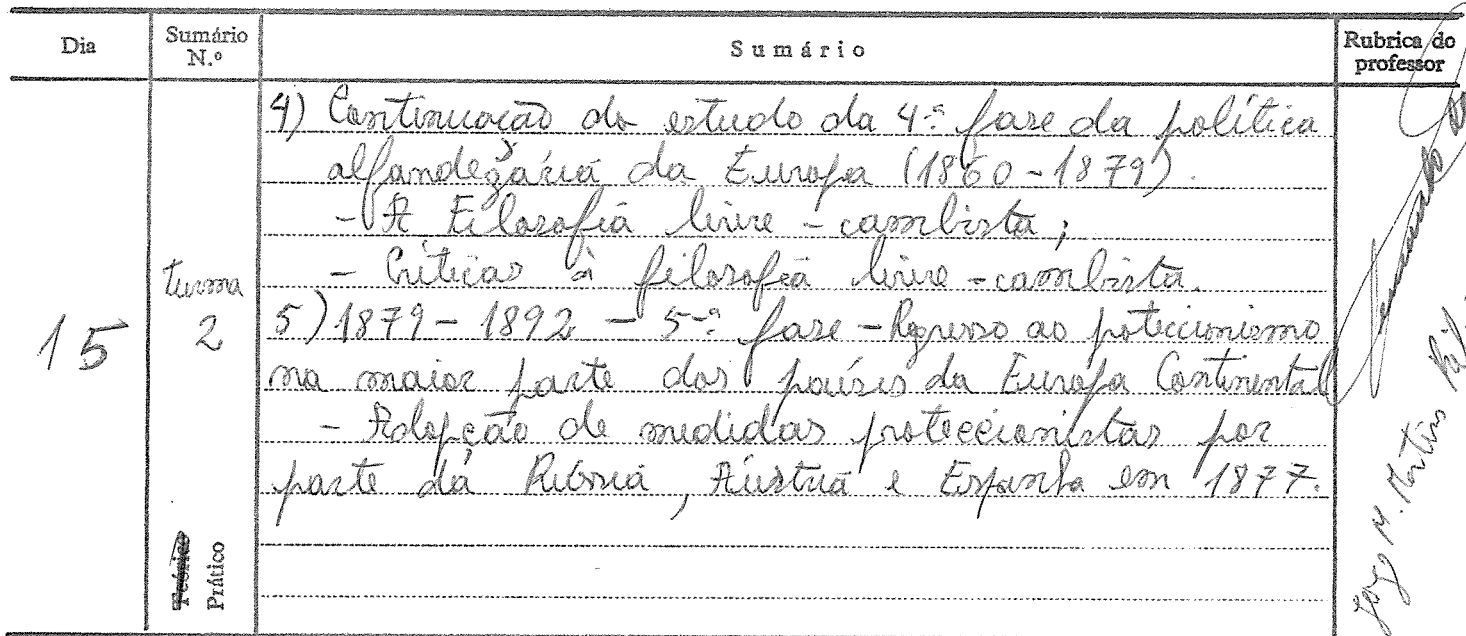 Dia
Sumário N.º
Sumário
Rubrica do professor
15
turma 2
Teórico
Prático
4) Continuação do estudo da 4.ª fase da política
alfandegária da Europa (1860-1879).
- A Filosofia livre-cambista;
- Críticas à filosofia livre-cambista.
5) 1879-1892 - 5.ª fase - Regresso ao proteccionismo
na maior parte dos países da Europa Continental
- Adopção de medidas proteccionistas por
parte da Rússia, Áustria e Espanha em 1877.
Jorge M. Martins